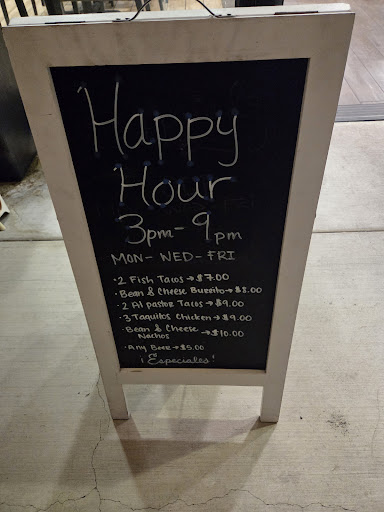 Happy
Hour
3pm-9pm
MON- WED- FRI
·2 Fish Tacos → $7.00
·Bean & Cheese Burrito → $8.00
·2 Al pastor Tacos → $9.00
·3 Taquitos Chicken → $9.00
·Bean & Cheese → $10.00
Nachos
·Any Beer → $5.00
¡Especiales!